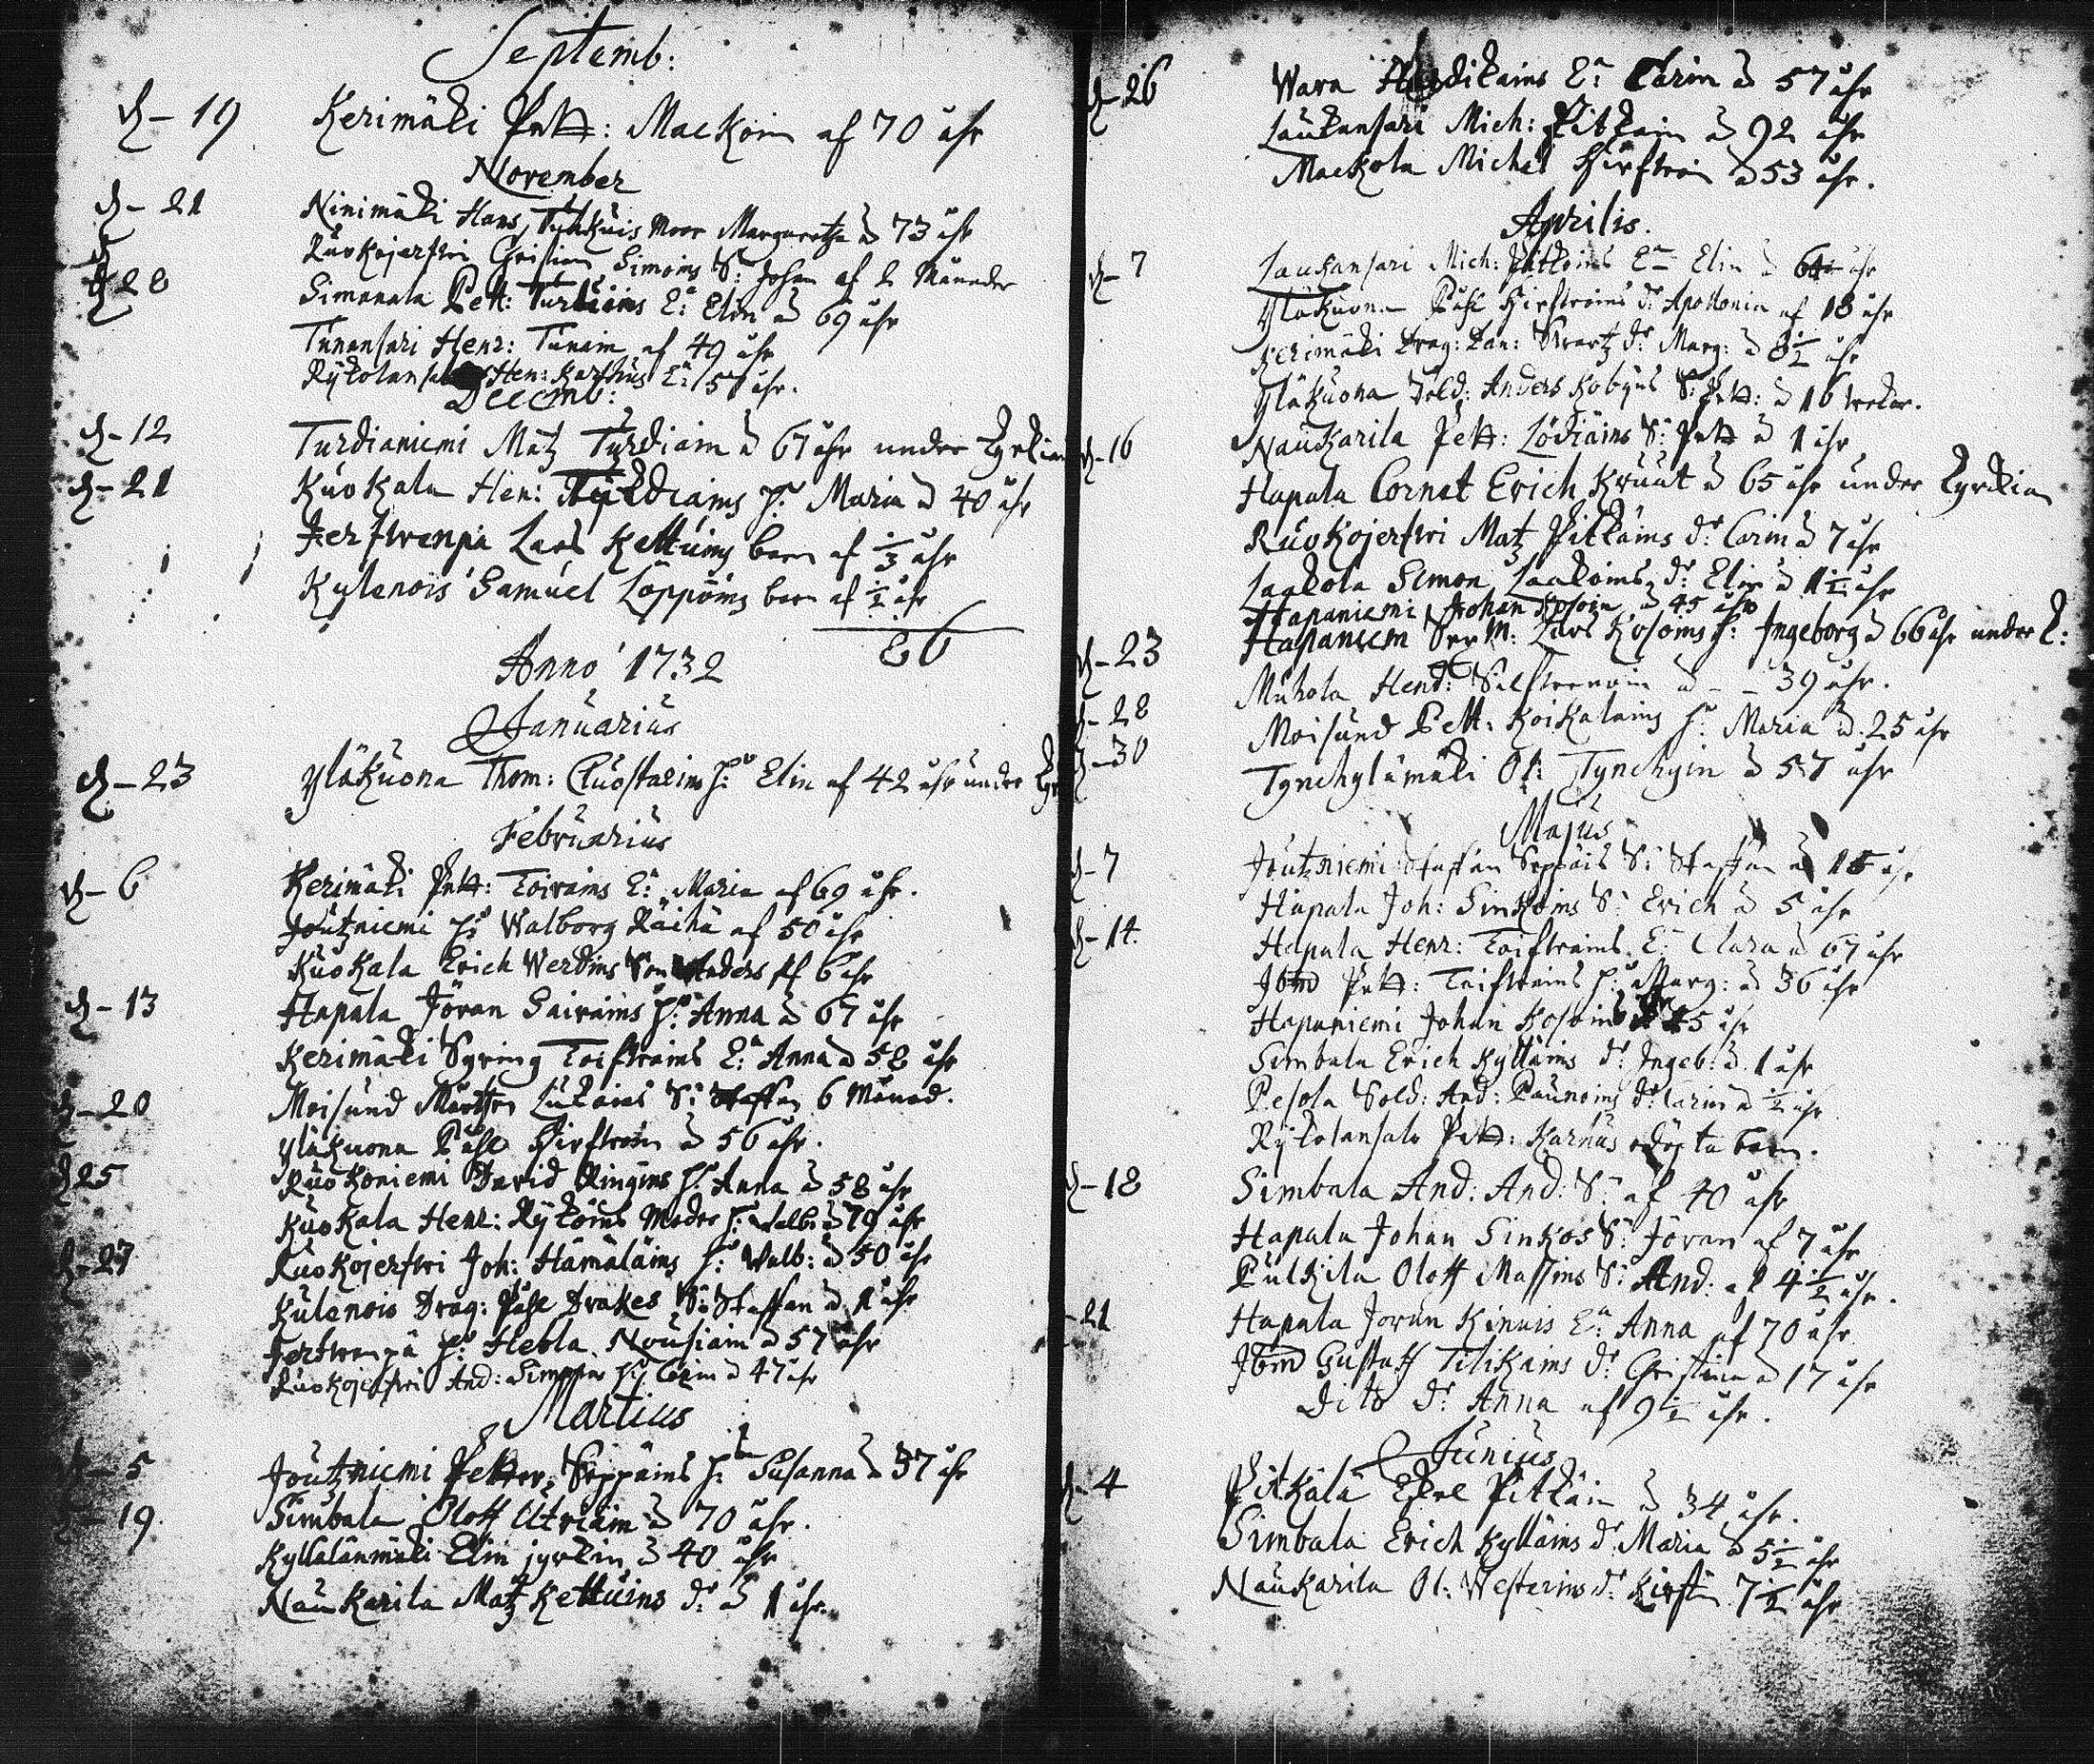 Septemb:
d. 19 Kerimäki Pett: Mackoin af 70 åhr
November
d. 21 Ninimäki Hans Tuhkuis Moor Margareta 73 åhr
Ruokojerfwi Christian Simoins S: Johan af 2 Månader
d. 28 Simanala Pett: Turdiains E: Elin 69 åhr
Tunansari Henr: Tunain af 49 åhr
Rykolansalo Hen: Karhus E: 57 åhr.
Decemb:
d. 12 Turdianiemi Matz Turdiain a 67 åhr under Kyrkian
d. 21 Kuokala Hen: H: Maria a 40 åhr
Jerfwenpä Lars Kettuins barn af 1/3 åhr
Kulenois Samuel Löppöins barn af 1/2 åhr
86
Anno 1732
Januarius
d. 23 Yläkuona Thom: H: Elin af 42 åhr under
Februarius
d. 6 Kerimäki Pett: Toivains E: Maria af 69 åhr.
Joutzniemi H: Walborg Räihä af 50 åhr
Kuokala Erich Werdins Son Anders af 6 åhr
d. 13 Hapala Jöran Sairains H: Anna a 67 åhr
Kerimäki Syring Toifwains E: Anna a 58 åhr
d. 20 Moisund Mårthen Lukains S: Staffan 6 Månad.
Yläkuona Påhl Hirfwoin a 56 åhr.
d. 25 Ruokoniemi David Ringins H: Anna a 58 åhr
Kuokala Henr: Ryköins Moder H: Walb: a 79 åhr
d. 27 Ruokojerfwi Joh: Hämäläins H: Walb: a 50 åhr
Kulenois Drag: Påhl Drakes S: Staffan a 1 åhr
Jerfwenpä H: Hebla Nousiain a 57 åhr
Ruokojerfwi And: H: Carin a 47 åhr
Martius
d. 5 Joutzniemi Petter Seppäins H: Susanna a 37 åhr
d. 19. Simbala Oloff Utriain a 70 åhr.
Kyllälänmäki Elin jyrkin a 40 åhr
Naukarila Matz Kettuins d: a 1 åhr.
d. 26 Wara E: Carin a 57 åhr
Laukansari Mich: Pitkäin a 92 åhr
Mackola Michel Hirfwoin a 53 åhr.
Aprilis.
d. 7 Laukansari Mich: Pitkäins E: Elin a åhr
Yläkuona Påhl Hirfwoins d: Apollonia af 18 åhr
Kerimäki Drag: Dan: Swartz d: Marg: a 8 1/2 åhr
Yläkuona Sold: Anders Kobins S: Pett: a 16 wekor.
d. 16 Naukarila Pett: Lödiäins S: Pett a 1 åhr
Hapala Cornet Erich Kruut a 65 åhr under Kyrkian
Ruokojerfwi Matz Pitkäins d: Carin a 7 åhr
Laakola Simon Laakoins d: Elin a 1 1/2 åhr
Hapaniemi Johan Kosoin a 45 åhr
d. 23 Hapaniem Lars Kosoins H: Ingeborg a 66 åhr under K:
Muhola Hend: a - - 39 åhr.
d. 28 Moisund Pett: Koikalains H: Maria a 25 åhr
d. 30 Tynchylämäki Ol: Tynchyin a 57 åhr
Majus
d. 7 Joutzniemi Staffan Seppäis S: Staffan a 15 åhr
Hapala Joh: Sinkoins S: Erich a 5 åhr
d. 14. Hapala Henr: Toifwains E: Clara a 67 åhr
Ibm Pett: Toifwains H: Marg: a 36 åhr
Hapaniemi Johan Kosoin 45 åhr
Simbala Erich Kylläins d: Ingeb: a 1 åhr
Pesola Sold: And: Paunoins d: Carin a 1/2 åhr
Rykolansalo Pett: Karhus odöpta barn.
d. 18 Simbala And: And: S: af 40 åhr
Hapala Johan Sinkos S: Jöran af 7 åhr
Pulkila Oloff Massins S: And: af 4 1/2 åhr.
21 Hapala Joran Kinuis E: Anna af 70 åhr
Ibm Gustaff Tilikains d: Christina a 17 åhr
Dito d: Anna af 9 1/2 åhr.
Junius
d. 4 Pitkälä Eskel Pitkäin a 34 åhr.
Simbala Erich Kylläins d: Maria a 5 1/2 åhr
Naukarila Ol: Westerins d: Kirstin 7 1/2 åhr